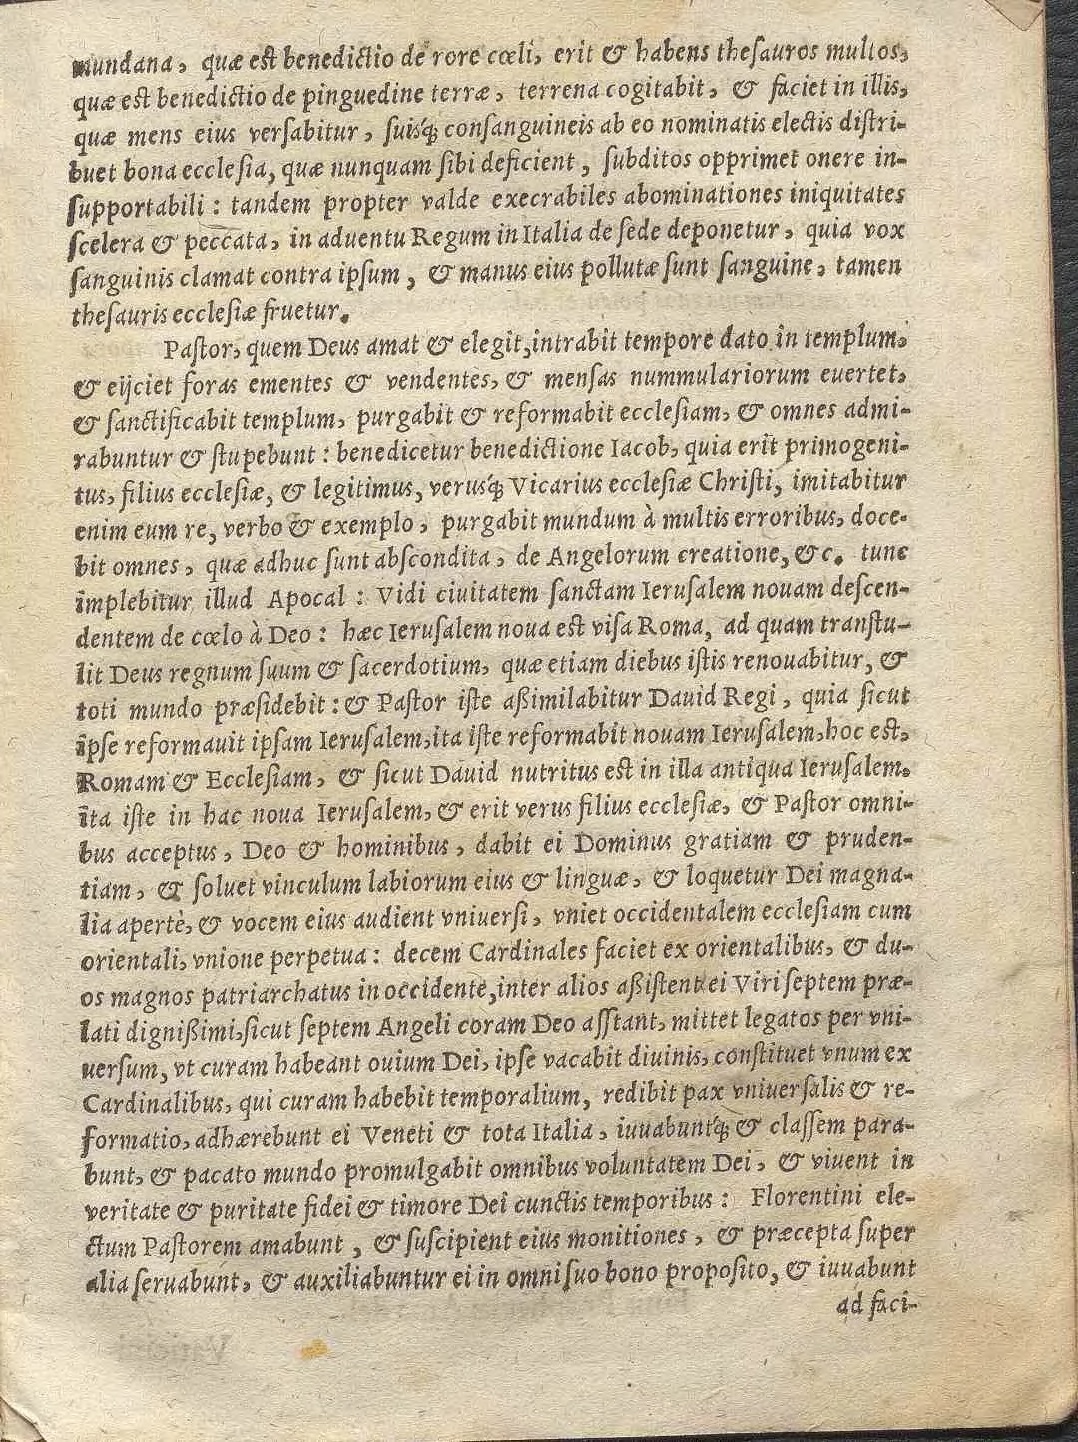 mundana, quæ est benedictio de rore cœli, erit & habens theſauros multos,
quæ est benedictio de pinguedine terræ, terrena cogitabit, & faciet in illis,
quæ mens eius verſabitur, ſuisq́; conſanguineis ab eo nominatis electis diſtri-
buet bona eccleſia, quæ nunquam ſibi deficient, ſubditos opprimet onere in-
ſupportabili : tandem propter valde execrabiles abominationes iniquitates
ſcelera & peccata, in aduentu Regum in Italia de ſede deponetur, quia vox
ſanguinis clamat contra ipſum, & manus eius pollutæ ſunt ſanguine, tamen
theſauris eccleſiæ fruetur.
Paſtor, quem Deus amat & elegit, intrabit tempore dato in templum,
& eijciet foras ementes & vendentes, & menſas nummulariorum euertet,
& ſanctificabit templum, purgabit & reformabit eccleſiam, & omnes admi-
rabuntur & ſtupebunt : benedicetur benedictione Iacob, quia erit primogeni-
tus, filius eccleſiæ, & legitimus, verusq́; Vicarius eccleſiæ Chriſti, imitabitur
enim eum re, verbo & exemplo, purgabit mundum à multis erroribus, doce-
bit omnes, quæ adhuc ſunt abſcondita, de Angelorum creatione, &c. tunc
implebitur illud Apocal : Vidi ciuitatem ſanctam Ieruſalem nouam deſcen-
dentem de cœlo à Deo : hæc Ieruſalem noua est viſa Roma, ad quam tranſtu-
lit Deus regnum ſuum & ſacerdotium, quæ etiam diebus iſtis renouabitur, &
toti mundo præſidebit : & Paſtor iſte aßimilabitur Dauid Regi, quia ſicut
ipſe reformauit ipſam Ieruſalem, ita iſte reformabit nouam Ieruſalem, hoc est,
Romam & Eccleſiam, & ſicut Dauid nutritus est in illa antiqua Ieruſalem.
ita iſte in hac noua Ieruſalem, & erit verus filius eccleſiæ, & Paſtor omni-
bus acceptus, Deo & hominibus, dabit ei Dominus gratiam & pruden-
tiam, & ſoluet vinculum labiorum eius & linguæ, & loquetur Dei magna-
lia apertè, & vocem eius audient vniuerſi, vniet occidentalem eccleſiam cum
orientali, vnione perpetua : decem Cardinales faciet ex orientalibus, & du-
os magnos patriarchatus in occidente, inter alios aßiſtent ei Viri ſeptem præ-
lati dignißimi, ſicut ſeptem Angeli coram Deo aſſtant, mittet legatos per vni-
uerſum, vt curam habeant ouium Dei, ipſe vacabit diuinis, conſtituet vnum ex
Cardinalibus, qui curam habebit temporalium, redibit pax vniuerſalis & re-
formatio, adhærebunt ei Veneti & tota Italia, iuuabuntq́; & claſſem para-
bunt, & pacato mundo promulgabit omnibus voluntatem Dei, & viuent in
veritate & puritate fidei & timore Dei cunctis temporibus : Florentini ele-
ctum Paſtorem amabunt, & ſuſcipient eius monitiones, & præcepta ſuper
alia ſeruabunt, & auxiliabuntur ei in omni ſuo bono propoſito, & iuuabunt
ad faci-